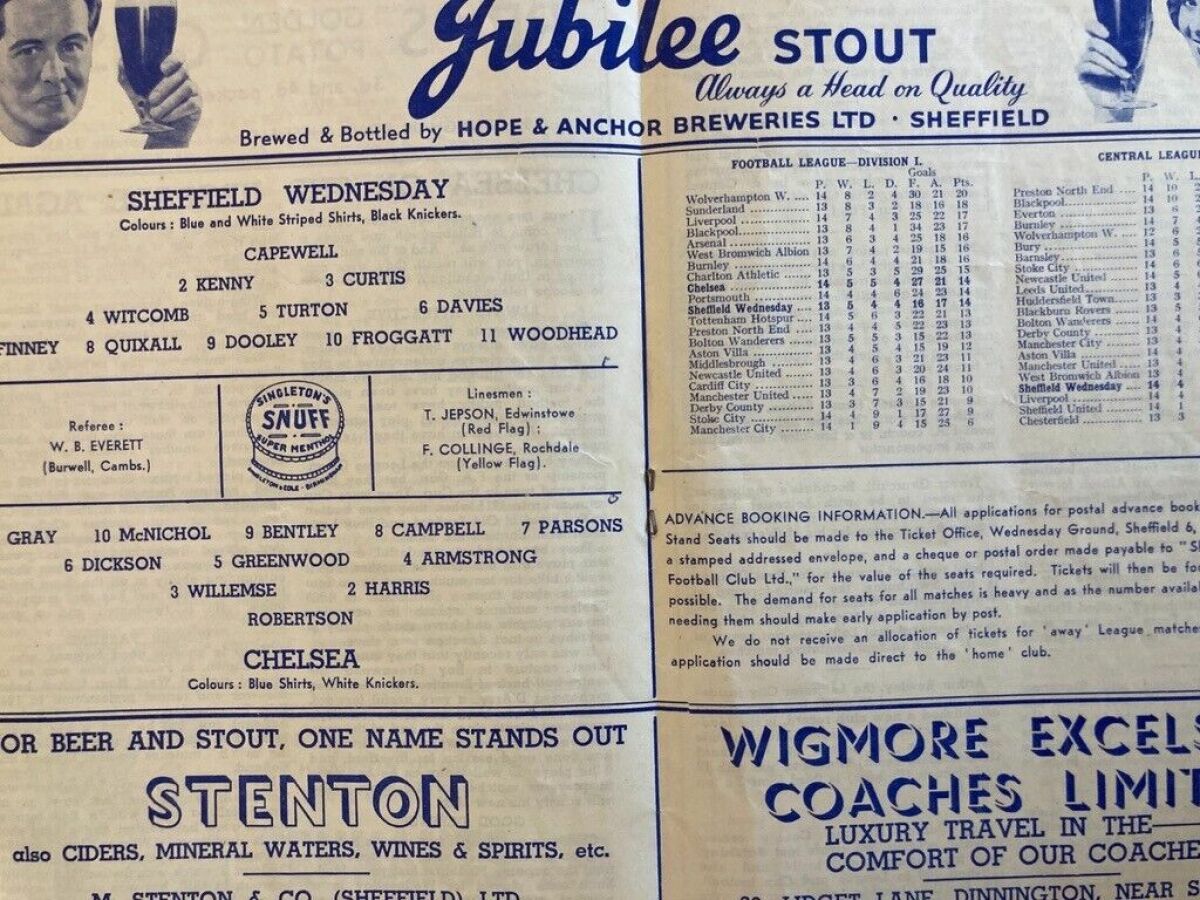 Jubilee STOUT
Always a Head on Quality
Brewed & Bottled by HOPE & ANCHOR BREWERIES LTD · SHEFFIELD
SHEFFIELD WEDNESDAY
Colours : Blue and White Striped Shirts, Black Knickers.
CAPEWELL
2 KENNY 3 CURTIS
4 WITCOMB 5 TURTON 6 DAVIES
FINNEY 8 QUIXALL 9 DOOLEY 10 FROGGATT 11 WOODHEAD
Referee :
W. B. EVERETT
(Burwell, Cambs.)
SINGLETON'S
SNUFF
SUPER MENTHOL
SINGLETON & COLE · BIRMINGHAM
Linesmen :
T. JEPSON, Edwinstowe
(Red Flag) ;
F. COLLINGE, Rochdale
(Yellow Flag).
GRAY 10 McNICHOL 9 BENTLEY 8 CAMPBELL 7 PARSONS
6 DICKSON 5 GREENWOOD 4 ARMSTRONG
3 WILLEMSE 2 HARRIS
ROBERTSON
CHELSEA
Colours : Blue Shirts, White Knickers.
OR BEER AND STOUT, ONE NAME STANDS OUT
STENTON
also CIDERS, MINERAL WATERS, WINES & SPIRITS, etc.
M. STENTON & CO. (SHEFFIELD) LTD.
FOOTBALL LEAGUE—DIVISION I.
Goals
P. W. L. D. F. A. Pts.
Wolverhampton W. .... 14 8 2 4 30 21 20
Sunderland 13 8 3 2 18 16 18
Liverpool 14 7 4 3 25 22 17
Blackpool 13 8 4 1 34 23 17
Arsenal 13 6 3 4 25 18 16
West Bromwich Albion 13 7 4 2 19 15 16
Burnley 14 6 4 4 21 18 16
Charlton Athletic 13 5 3 5 29 25 15
Chelsea 14 5 5 4 27 21 14
Portsmouth 14 4 4 6 24 23 14
Sheffield Wednesday 13 5 4 4 16 17 14
Tottenham Hotspur 14 5 6 3 22 21 13
Preston North End 13 4 4 5 22 23 13
Bolton Wanderers 13 5 5 3 15 22 13
Aston Villa 13 4 5 4 15 19 12
Middlesbrough 13 4 6 3 21 23 11
Newcastle United 13 4 6 3 20 24 11
Cardiff City 13 3 6 4 16 18 10
Manchester United 13 4 7 2 19 23 10
Derby County 13 3 7 3 15 21 9
Stoke City 14 4 9 1 17 27 9
Manchester City 14 1 9 4 15 25 6
CENTRAL LEAGU
P. W. L.
Preston North End 14 10
Blackpool 14 10
Everton 13 6
Burnley 14 7
Wolverhampton W. 12 6
Bury 14 5
Barnsley 13 6
Stoke City 14 6
Newcastle United 14 5
Leeds United 13 4
Huddersfield Town 13 3
Blackburn Rovers 13 5
Bolton Wanderers 14 4
Derby County 13 4
Manchester City 13 4
Aston Villa 14 4
Manchester United 14 4
West Bromwich Albion 13 4
Sheffield Wednesday 14 4
Liverpool 14 4
Sheffield United 14 1
Chesterfield 13 3
ADVANCE BOOKING INFORMATION.—All applications for postal advance book
Stand Seats should be made to the Ticket Office, Wednesday Ground, Sheffield 6,
a stamped addressed envelope, and a cheque or postal order made payable to "S
Football Club Ltd.," for the value of the seats required. Tickets will then be fo
possible. The demand for seats for all matches is heavy and as the number availa
needing them should make early application by post.
We do not receive an allocation of tickets for 'away' League matches
application should be made direct to the 'home' club.
WIGMORE EXCELS
COACHES LIMIT
LUXURY TRAVEL IN THE—
COMFORT OF OUR COACHE
LIDGET LANE, DINNINGTON, NEAR S